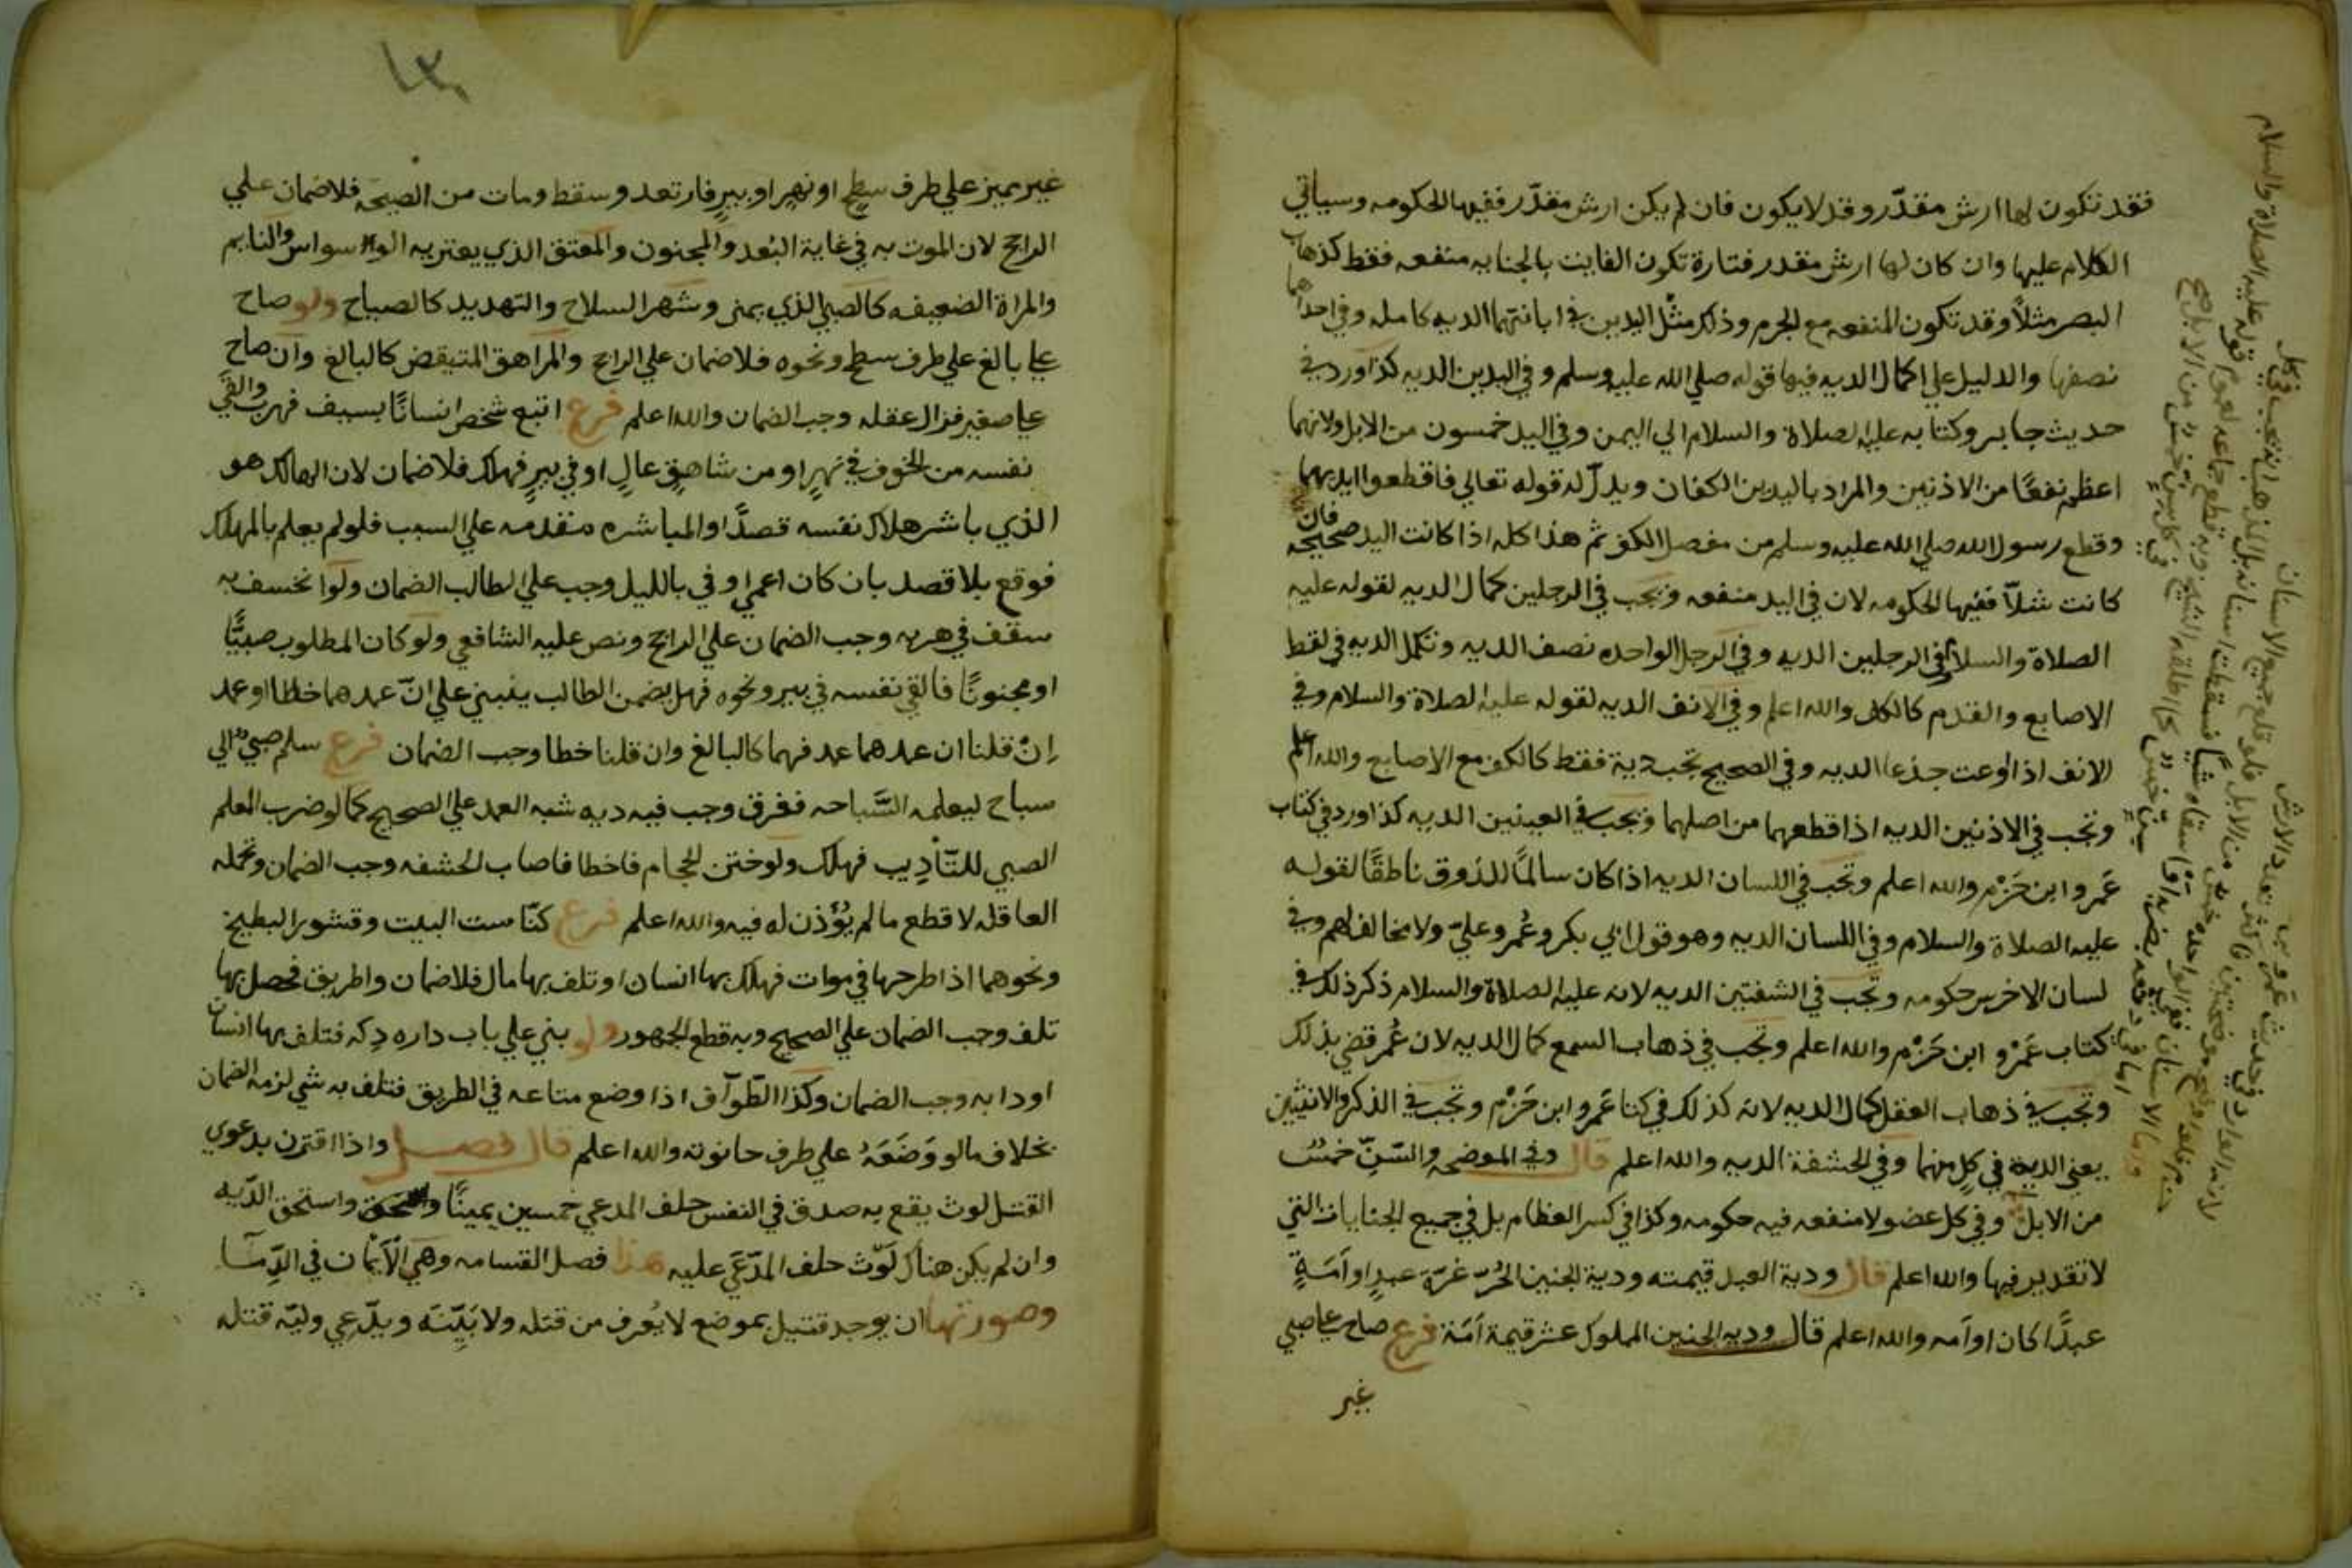 فقد تكون لها ارش مقدّر وقد لا يكون فان لم يكن ارش مقدّر ففيها الحكومه وسياتي
الكلام عليها وان كان لها ارش مقدر فتارة تكون الفايت بالجنايه منفعه فقط كذهاب
البصر مثلاً وقد تكون المنفعه مع الجرم وذلك مثل اليدين في ابانتهما الديه كامله وفي احداهما
نصفها والدليل علي اكمال الديه فيها قوله صلي الله عليه وسلم وفي اليدين الديه كذا ورد في
حديث جابر وكتابه عليه الصلاة والسلام الي اليمن وفي اليد خمسون من الابل ولانهما
اعظم نفعًا من الاذنين والمراد باليدين الكفان ويدلّ له قوله تعالي فاقطعوا ايديهما
وقطع رسول الله صلي الله عليه وسلم من مفصل الكف ثم هذا كله اذا كانت اليد صحيحه فان
كانت شلّا ففيها الحكومه لان في اليد منفعه وتجب في الرجلين كمال الديه لقوله عليه
الصلاة والسلام في الرجلين الديه وفي الرجل الواحده نصف الديه وتكمل الديه في لقط
الاصابع والقدم كالكف والله اعلم وفي الانف الديه لقوله عليه الصلاة والسلام وفي
الانف اذا اوعت جذعا الديه وفي الصحيح تجب دية فقط كالكف مع الاصابع والله اعلم
وتجب في الاذنين الديه اذا قطعهما من اصلهما وتجب في العينين الديه كذا ورد في كتاب
عَمرو ابن حَزْم والله اعلم وتجب في اللسان الديه اذا كان سالمًا للذوق ناطقًا لقوله
عليه الصلاة والسلام وفي اللسان الديه وهو قول ابي بكر وعُمر وعليّ ولا مخالف لهم وفي
لسان الاخرس حكومه وتجب في الشفتين الديه لانه عليه الصلاة والسلام ذكر ذلك في
كتاب عَمْرو ابن حَزْم والله اعلم وتجب في ذهاب السمع كمال الديه لان عُمر قضي بذلك
وتجب في ذهاب العقل كمال الديه لانه كذلك في كتاب عَمرو ابن حَزْم وتجب في الذكر والانثيين
يعني الدية في كلٍ منهما وفي الحشفة الديه والله اعلم قال وفي الموضحه والسّنّ خمسٌ
من الابل وفي كل عضو لا منفعه فيه حكومه وكذا في كسر العظام بل في جميع الجنايات التي
لا تقدير فيها والله اعلم قال ودية العبد قيمته ودية الجنين الحُرّ غرّة عبدٍ او اَمَةٍ
عبدًا كان او اَمه والله اعلم قال وديه الجنين المملوك عشر قيمة اَمّهُ فرع صاح علي صبي
غير
١٣٠
غير مميز علي طرف سطح او نهر او بيرٍ فارتعد وسقط ومات من الصيحه فلا ضمان علي
الراجح لان الموت به في غاية البُعد والمجنون والمعتق الذي يعتريه الوسواس والنايم
والمراة الضعيفه كالصبي الذي يمنى وشهر السلاح والتهديد كالصياح ولو صاح
علي بالغ علي طرف سطح ونحوه فلا ضمان علي الراجح والمراهق المتيقض كالبالغ وان صاح
علي صغير فزال عقله وجب الضمان والله اعلم فرع اتبع شخص انسانًا بسيف فهرب والقي
نفسه من الخوف في نهرٍ او من شاهقٍ عالٍ او في بيرٍ فهلك فلا ضمان لان الهالك هو
الذي باشر هلاك نفسه قصدًا والمباشره متقدمه علي السبب فلو لم يعلم بالمهلك
فوقع بلا قصد بان كان اعمي او في بالليل وجب علي الطالب الضمان ولو انخسف به
سقف في هربه وجب الضمان علي الراجح ونص عليه الشافعي ولو كان المطلوب صبيًّا
او مجنونًا فالقي نفسه في بير ونحوه فهل يضمن الطالب يبني علي انّ عمدهما خطا او عمد
إنْ قلنا ان عمدهما عمد فهما كالبالغ وان قلنا خطا وجب الضمان فرع سلم صبي الي
سباح ليعلمه السّباحه فغرق وجب فيه ديه شبه العمد علي الصحيح كما لو ضرب المعلم
الصبي للتّأدِيب فهلك ولو ختن الحجام فاخطا فاصاب الحشفه وجب الضمان وتحمله
العاقله لا قطع ما لم يُؤْذن له فيه والله اعلم فرع كنّاست البيت وقشور البطيخ
ونحوهما اذا طرحها في موات فهلك بها انسان او تلف بها مال فلا ضمان واطريق فحصل بها
تلف وجب الضمان علي الصحيح وبه قطع الجهور ولو بني علي باب داره دِكه فتلف بها انسان
او دابه وجب الضمان وكذا الطّوّاف اذا وضع متاعه في الطريق فتلف به شي لزمه الضمان
بخلاف ما لو وَضَعَهُ علي طرف حانوته والله اعلم قال فصل واذا اقترن بدعوي
القتل لوث يقع به صدق في النفس حلف المدعي خمسين يمينًا واستحق الدّيه
وان لم يكن هناك لَوّث حلف المدّعَي عليه هذا فصل القسامه وهي الاَيْمان في الدِّما
وصورتها ان يوجد قتيل بموضع لا يُعرف من قتله ولا بَيِّنَه ويدّعي وليّه قتله